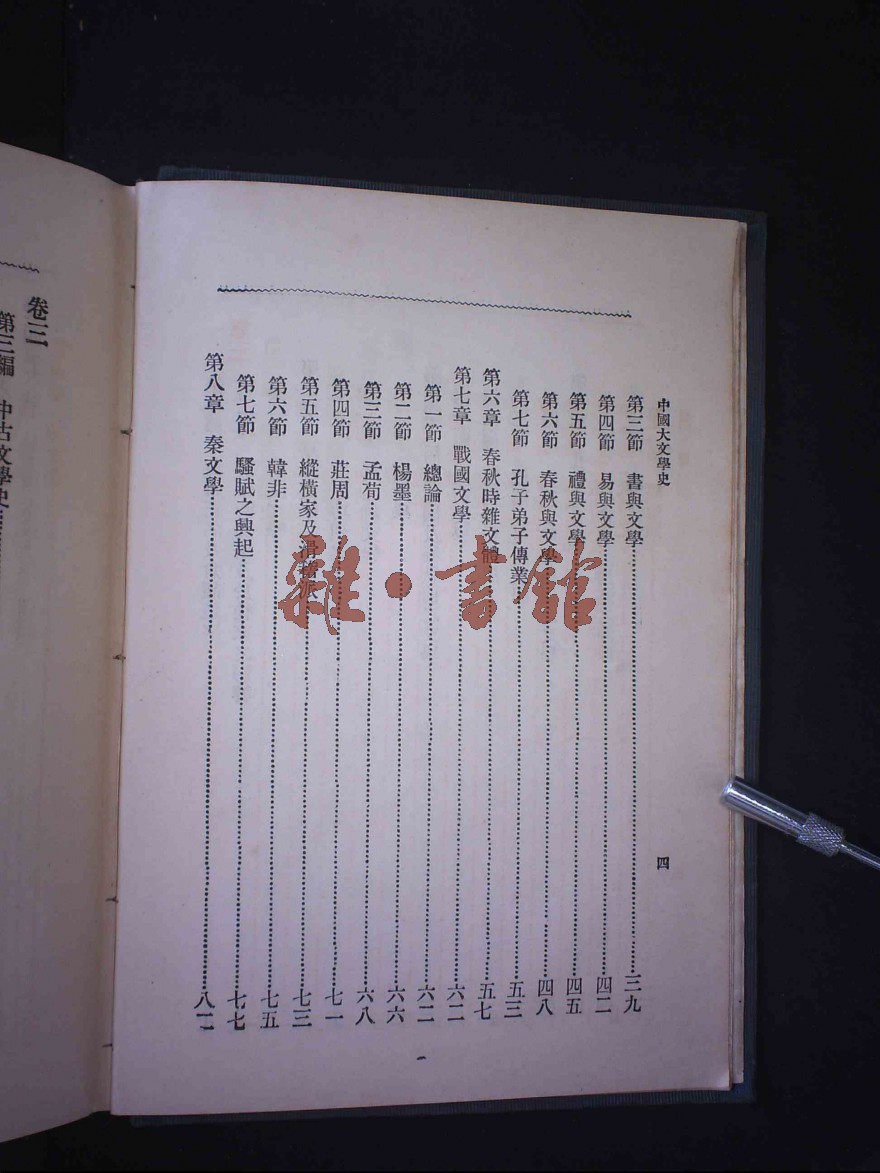 中國大文學史
四
第三節　書與文學………三九
第四節　易與文學………四二
第五節　禮與文學………四五
第六節　春秋與文學………四八
第七節　孔子弟子傳業………五三
第六章　春秋時雜文體………五七
第七章　戰國文學………六二
第一節　總論………六二
第二節　楊墨………六六
第三節　孟荀………六八
第四節　莊周………七一
第五節　縱橫家及滑稽派………七三
第六節　韓非………七五
第七節　騷賦之興起………七七
第八章　秦文學………八二
卷三
第三編　中古文學史
雜·書館